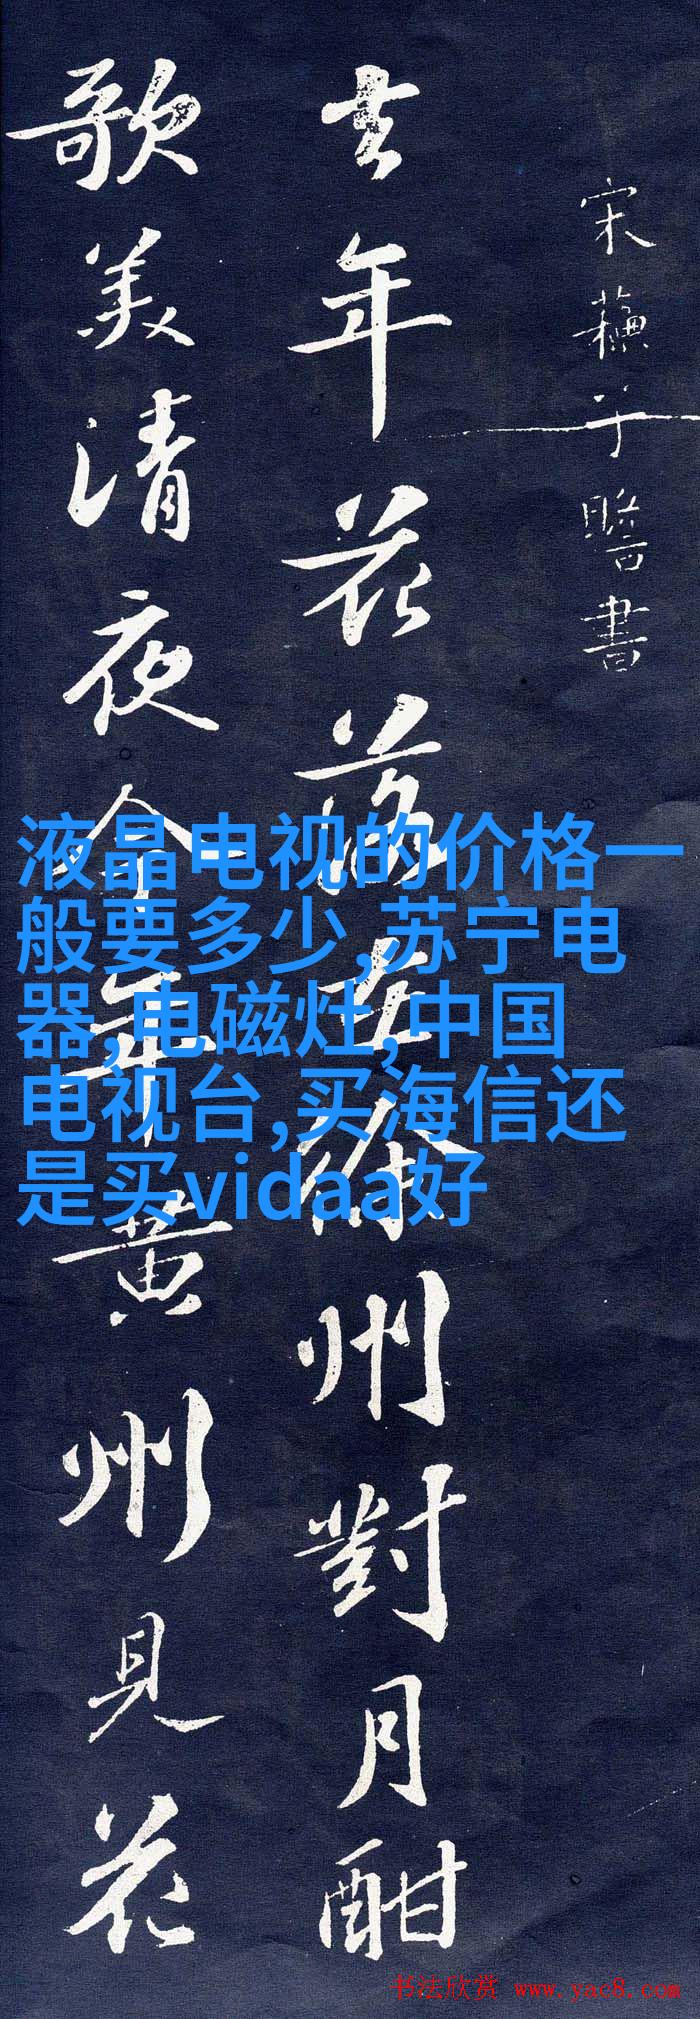 宋蘓子瞻書
去年花落在徐州對月酣
歌美清夜今年黄州見花
液晶电视的价格一
般要多少,苏宁电
器,电磁灶,中国
电视台,买海信还
是买vidaa好
书法欣赏 www.yac8.com